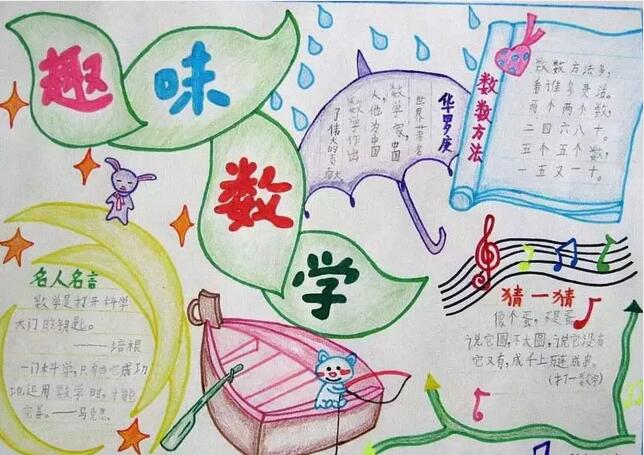 趣味数学
名人名言
数学是打开科学
大门的钥匙。
——培根
一门科学,只有当它成功
地运用数学时,
完善。——马克思
华罗庚
世界著名
数学家,中国
人,他为中国
数学作出
了伟大的贡
数数方法
数数方法多,
看谁
两个两个数,
二四六八十。
五个五个数,
一五又一十。
猜一猜
像个蛋,不是蛋
说它圆,不太圆,说它没有
它又有,成千上万连成串。
(打一数字)